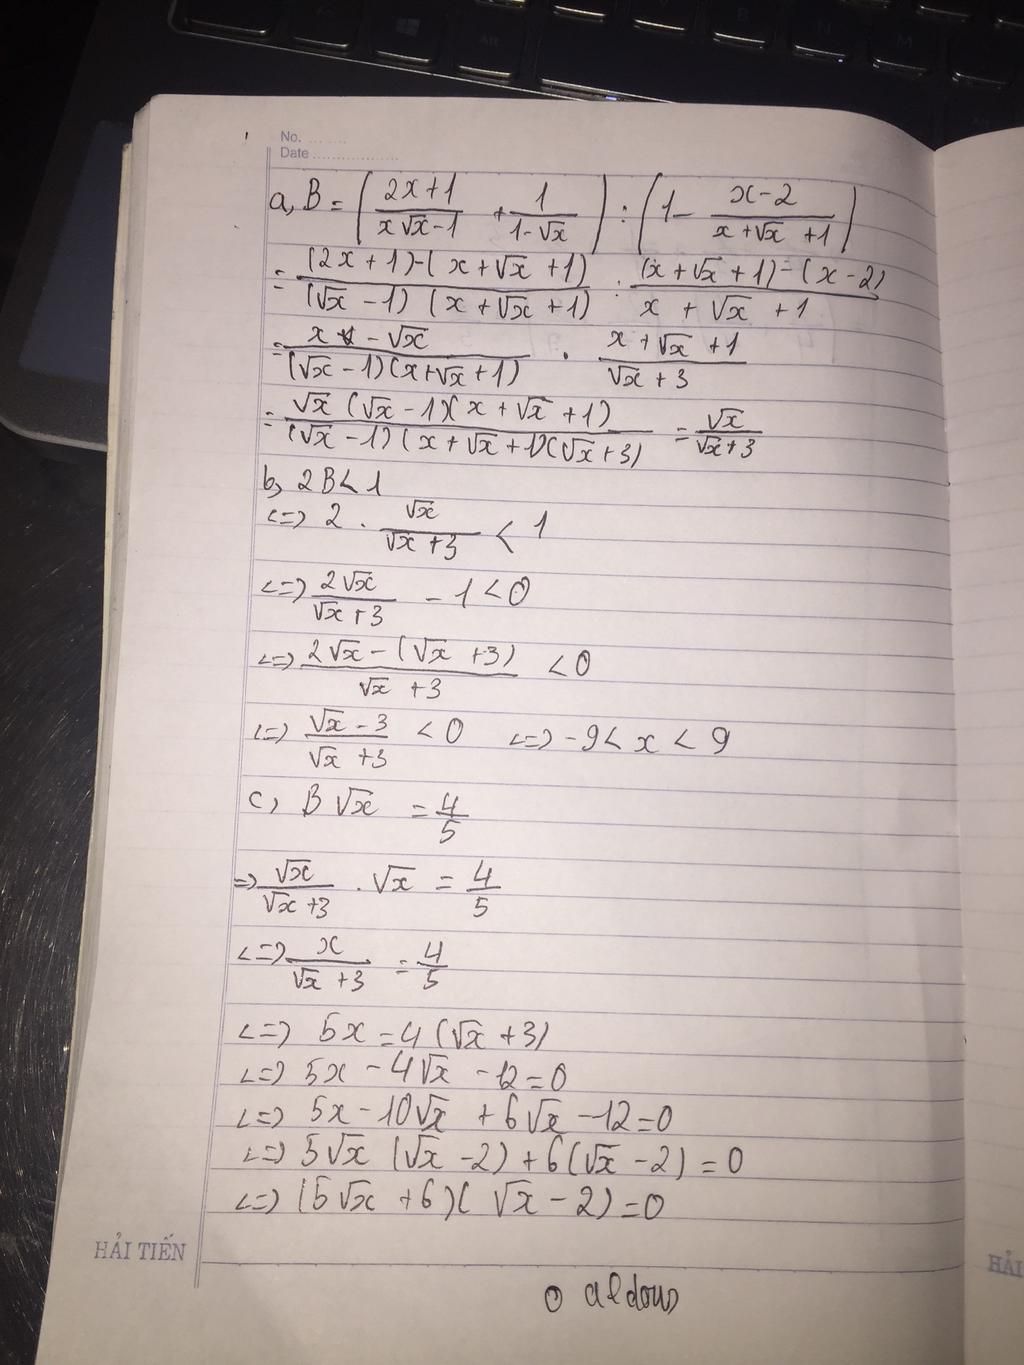 No. ........
Date ..................
a, B = ( (2x+1)/(x√x-1) + 1/(1-√x) ) : ( 1 - (x-2)/(x+√x+1) )
= ((2x+1)-(x+√x+1))/((√x-1)(x+√x+1)) : ((x+√x+1)-(x-2))/(x+√x+1)
= (x-√x)/((√x-1)(x+√x+1)) . (x+√x+1)/(√x+3)
= (√x(√x-1)(x+√x+1))/((√x-1)(x+√x+1)(√x+3)) = √x/(√x+3)
b, 2B<1
<=> 2 . √x/(√x+3) < 1
<=> 2√x/(√x+3) - 1 < 0
<=> (2√x-(√x+3))/(√x+3) < 0
<=> (√x-3)/(√x+3) < 0 <=> -9 < x < 9
c, B√x = 4/5
=> √x/(√x+3) . √x = 4/5
<=> x/(√x+3) = 4/5
<=> 5x = 4(√x+3)
<=> 5x - 4√x - 12 = 0
<=> 5x - 10√x + 6√x - 12 = 0
<=> 5√x(√x-2) + 6(√x-2) = 0
<=> (5√x+6)(√x-2) = 0
HẢI TIẾN
HẢI